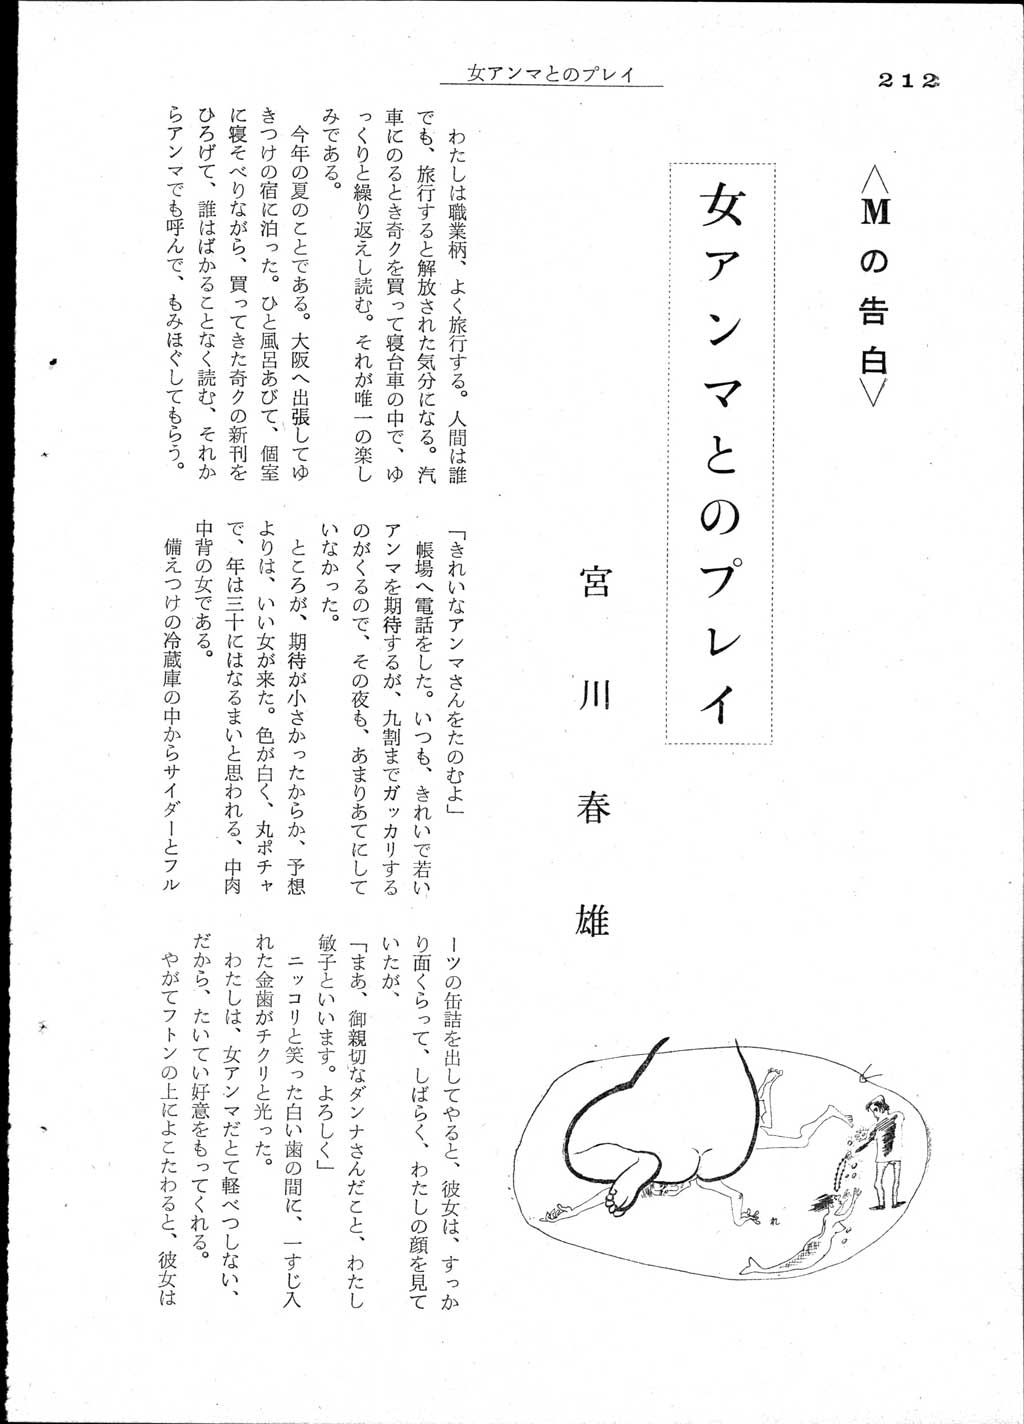 女アンマとのプレイ
212
〈Mの告白〉
女アンマとのプレイ
宮川春雄
わたしは職業柄、よく旅行する。人間は誰
でも、旅行すると解放された気分になる。汽
車にのるとき奇クを買って寝台車の中で、ゆ
っくりと繰り返えし読む。それが唯一の楽し
みである。
今年の夏のことである。大阪へ出張してゆ
きつけの宿に泊った。ひと風呂あびて、個室
に寝そべりながら、買ってきた奇クの新刊を
ひろげて、誰はばかることなく読む、それか
らアンマでも呼んで、もみほぐしてもらう。
「きれいなアンマさんをたのむよ」
帳場へ電話をした。いつも、きれいで若い
アンマを期待するが、九割までガッカリする
のがくるので、その夜も、あまりあてにして
いなかった。
ところが、期待が小さかったからか、予想
よりは、いい女が来た。色が白く、丸ポチャ
で、年は三十にはなるまいと思われる、中肉
中背の女である。
備えつけの冷蔵庫の中からサイダーとフル
ーツの缶詰を出してやると、彼女は、すっか
り面くらって、しばらく、わたしの顔を見て
いたが、
「まあ、御親切なダンナさんだこと、わたし
敏子といいます。よろしく」
ニッコリと笑った白い歯の間に、一すじ入
れた金歯がチクリと光った。
わたしは、女アンマだとて軽べつしない、
だから、たいてい好意をもってくれる。
やがてフトンの上によこたわると、彼女は
れ